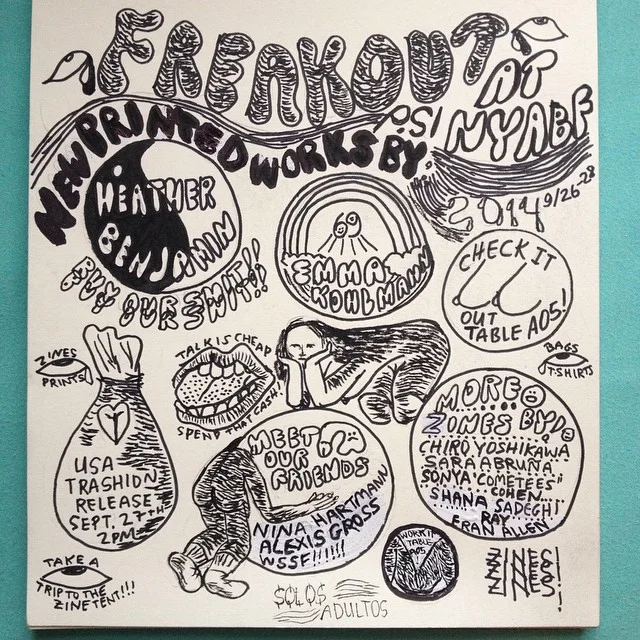 FREAKOUT
AT
PS1
NYABF
2014 9/26-28
NEW PRINTED WORKS BY
HEATHER
BENJAMIN
EMMA
KOHLMANN
BUY OUR SHIT!!
CHECK IT
OUT
TABLE A05!
ZINES
PRINTS
TALK IS CHEAP
SPEND THAT CASH!
BAGS
T-SHIRTS
USA
TRASHION
RELEASE
SEPT. 27TH
2PM
MEET
OUR
FRIENDS
NINA HARTMANN
ALEXIS GROSS
NSSE!!!!!!
MORE
ZONES BY
CHIRO YOSHIKAWA
SARA ABRUÑA
SONYA "COMETEES"
COHEN
SHANA SADEGHI
RAY
FRAN ALLEN
WORK IT
TABLE
A05
TAKE A
TRIP TO THE
ZINE TENT!!!
$OLO$
ADULTOS
ZINES!
ZINES!
ZINES!